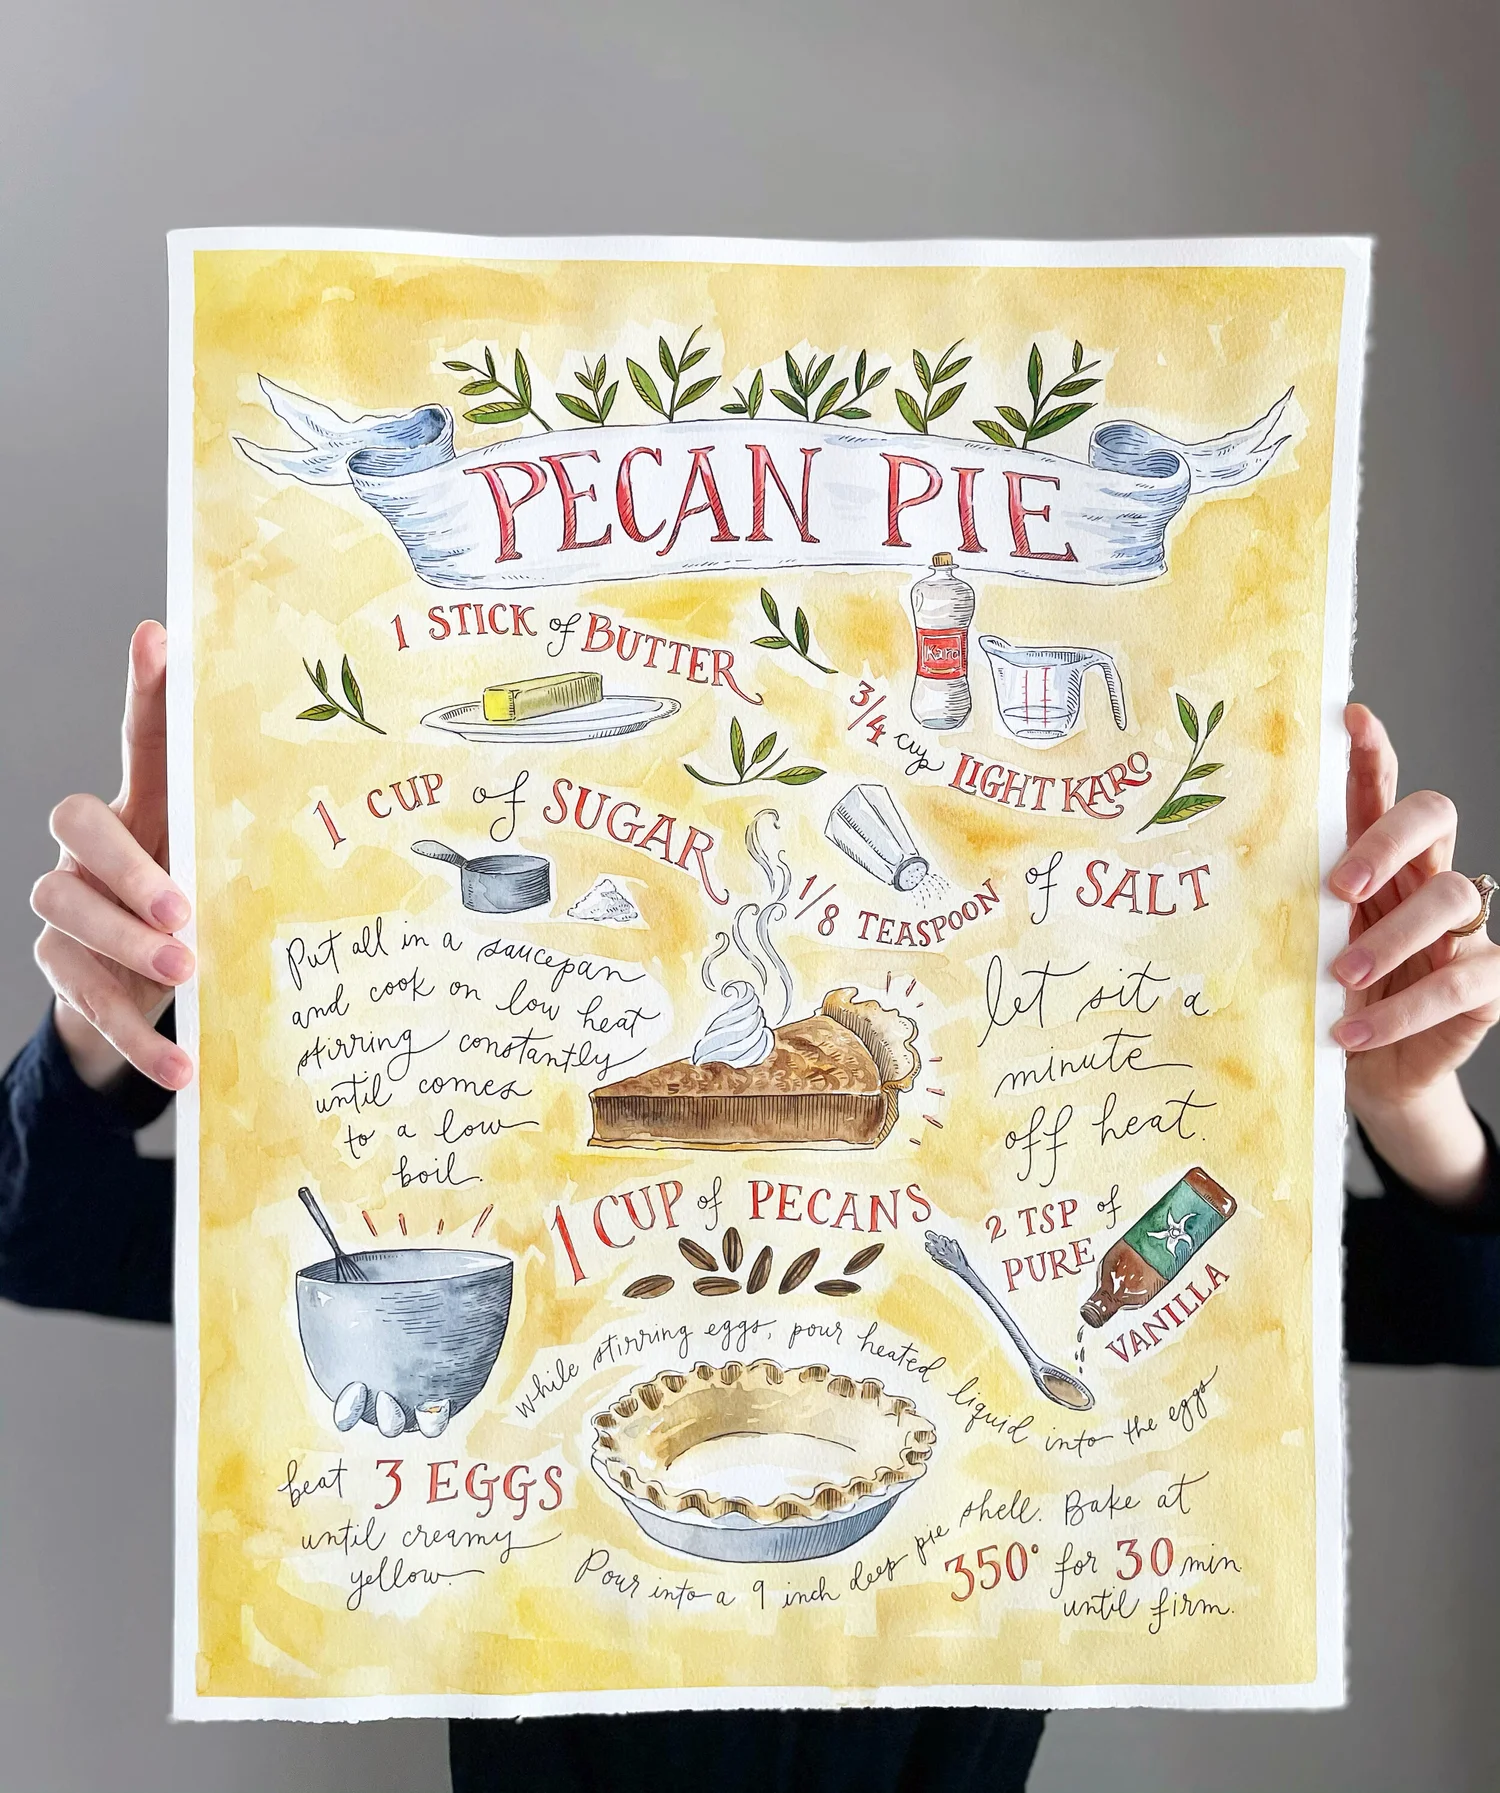 PECAN PIE
1 STICK of BUTTER
Karo
3/4 cup LIGHT KARO
1 CUP of SUGAR
1/8 TEASPOON of SALT
Put all in a saucepan
and cook on low heat
stirring constantly
until comes
to a low
boil.
let sit a
minute
off heat.
1 CUP of PECANS
2 TSP of
PURE
VANILLA
while stirring eggs, pour heated liquid into the eggs
beat 3 EGGS
until creamy
yellow.
Pour into a 9 inch deep pie shell. Bake at
350° for 30 min
until firm.